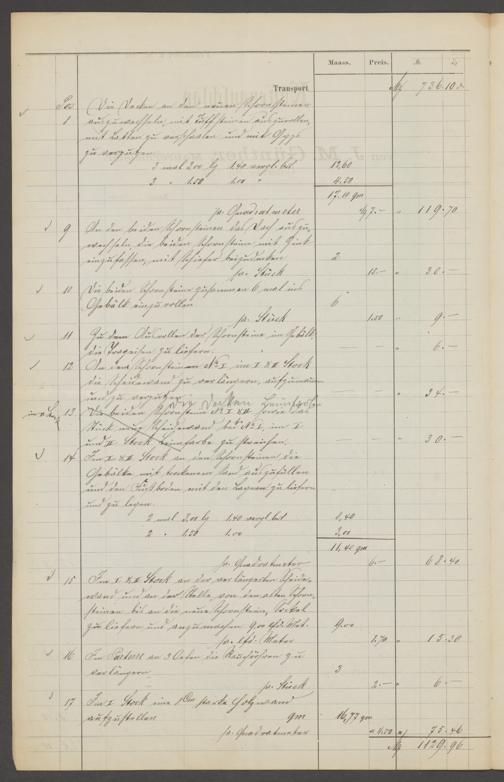 Maass. Preis. M. ₰
Transport M 736.10
Pos.
8 Die Decken an den neuen Schornsteinen
auszuwechseln, mit
mit Latten zu verschalen und mit Gyps
zu verputzen
3 mal 3.00 lg 1.40 vergl. bst 12,60
3 " 1.50 1.00 " 4.50
17.10 qm
pr. Quadratmeter M 7.— " 119.70
9 An den beiden Schornsteinen das Dach auszu-
wechseln, die beiden Schornsteine mit Zink
einzufassen, mit Schiefer beizudecken 2
pr. Stück 10.— " 20.—
10 Die beiden Schornsteine zusammen 6 mal ins
Gebälk einzurollen 6
pr. Stück 1.50 " 9.—
11 Zu dem Ausrollen der Schornsteine im Gebälk
die Trageisen zu liefern. — — " 6.—
12 An den Schornsteinen No I im I & II Stock
die Scheidewand zu verlängern, aufzumauern
und zu verputzen — — " 34.—
13 Die beiden Schornsteine No I & II sowie das
Stück neue Scheidewand bei No I, im I
und II Stock Leimfarbe zu streichen. — — " 30.—
die Decken
14 Im I & II Stock an den Schornsteinen die
Gebälke mit trockenem Sand auszufüllen
und den Fußboden mit den Lagern zu liefern
und zu legen.
2 mal 3.00 lg 1.40 vergl. bst 8,40
2 " 1.50 1.00 3,00
11.40 qm
pr. Quadratmeter 6.— " 68.40
15 Im I & II Stock an der verlängerten Scheide-
wand und an der Stelle, von den alten Schorn-
steinen bis an die neuen Schornsteine, Sockel
zu liefern und anzumachen 9.00 lfd. Mtr. 9.00
pr. lfd. Meter 1,70 " 15.30
16 Im Parterre an 3 Oefen die Rauchröhren zu
verlängern 3
pr. Stück 2.— " 6.—
17 Im I Stock eine starke Holzwand
aufzustellen qm 16,77 qm
pr. Quadratmeter a 4.50 " 75.46
M 1129.96